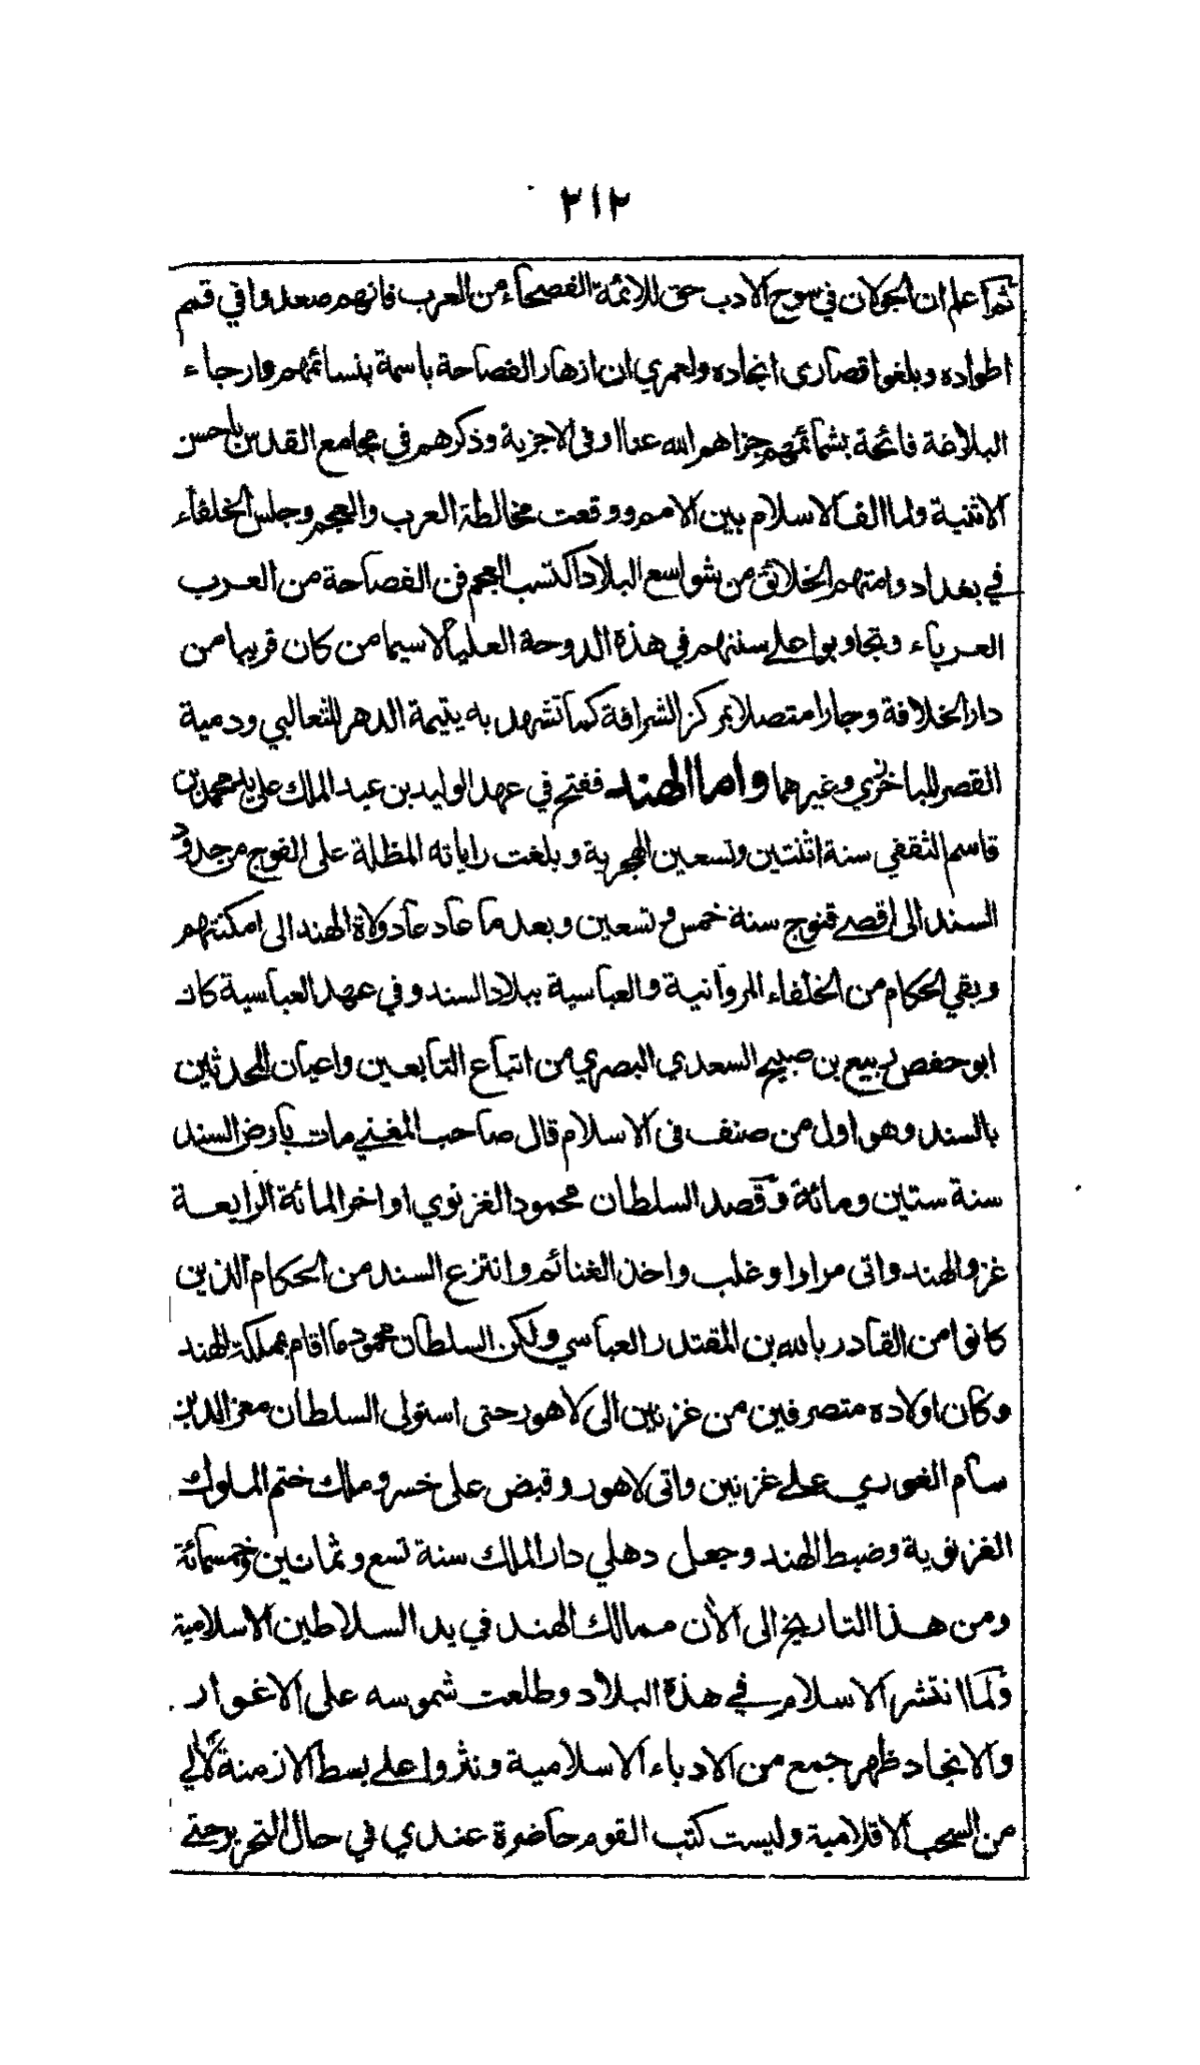 ٢١٢
ثم اعلم ان الجولان في سوح الادب حق للائمة الفصحاء من العرب فانهم صعدوا في قمم
اطواده وبلغوا قصارى انجاده ولعمري ان ازهار الفصاحة باسمة بنسائمهم وارجاء
البلاغة فائحة بشمائمهم جزاهم الله عنا اوفى الاجزية وذكرهم في مجامع القدس باحسن
الاثنية ولما الف الاسلام بين الامم ووقعت مخالطة العرب والعجم وجلس الخلفاء
في بغداد وامتهم الخلائق من شواسع البلاد اكتسب العجم فن الفصاحة من العرب
العرباء وتجاوبوا على سننهم في هذه الدوحة العلياء لاسيما من كان قريبا من
دار الخلافة وجارا متصلا بمركز الشرافة كما تشهد به يتيمة الدهر للثعالبي ودمية
القصر للباخرزي وغيرهما واما الهند ففتح في عهد الوليد بن عبد الملك على يد محمد بن
قاسم الثقفي سنة اثنتين وتسعين الهجرية وبلغت راياته المظلة على الفوج من حدود
السند الى اقصى قنوج سنة خمس وتسعين وبعد ما عاد عاد ولاة الهند الى امكنتهم
وبقي الحكام من الخلفاء المروانية والعباسية ببلاد السند وفي عهد العباسية كان
ابو حفص ربيع بن صبيح السعدي البصري من اتباع التابعين واعيان المحدثين
بالسند وهو اول من صنف فى الاسلام قال صاحب المغني مات بارض السند
سنة ستين ومائة وقصد السلطان محمود الغزنوي اواخر المائة الرابعة
غزو الهند واتى مرارا وغلب واخذ الغنائم وانتزع السند من الحكام الذين
كانوا من القادر بالله بن المقتدر العباسي ولكن السلطان محمود ما اقام بمملكة الهند
وكان اولاده متصرفين من غزنين الى لاهور حتى استولى السلطان معز الدين
سام الغوري على غزنين واتى لاهور وقبض على خسرو ملك ختم الملوك
الغزنوية وضبط الهند وجعل دهلي دار الملك سنة تسع وثمانين وخمسمائة
ومن هذا التاريخ الى الآن ممالك الهند في يد السلاطين الاسلامية
ولما انتشر الاسلام في هذه البلاد وطلعت شموسه على الاغوار
والانجاد ظهر جمع من الادباء الاسلامية ونثروا على بسط الازمنة لآلي
من السحب الاقلامية وليست كتب القوم حاضرة عندي في حال التحرير حتى